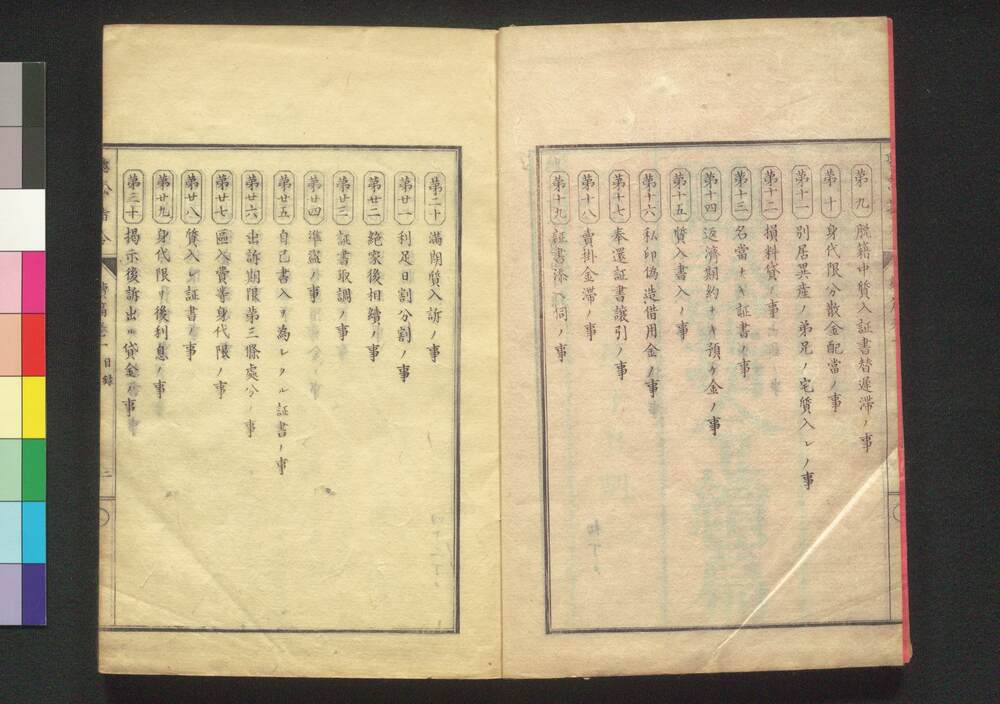 第九 脱籍中質入証書替遅滞ノ事
第十 身代限分散金配當ノ事
第十一 別居異産ノ弟兄ノ宅質入レノ事
第十二 損料貸ノ事
第十三 名當ナキ証書ノ事
第十四 返済期約ナキ預ケ金ノ事
第十五 質入書入ノ事
第十六 私印偽造借用金ノ事
第十七 奉還証書譲引ノ事
第十八 賣掛金滞ノ事
第十九 証書添ヘ伺ノ事
第二十 満期質入訴ノ事
第廿一 利足日割分割ノ事
第廿二 絶家後相續ノ事
第廿三 証書取調ノ事
第廿四 準竊ノ事
第廿五 自己書入ヲ為レタル証書ノ事
第廿六 出訴期限第三條處分ノ事
第廿七 區入費等身代限ノ事
第廿八 質入レ証書ノ事
第廿九 身代限ノ後利息ノ事
第三十 揭示後訴出ル貸金ノ事
目録
二